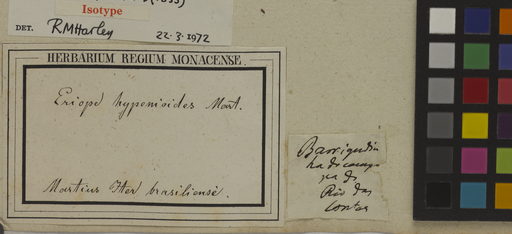 Isotype
DET. RMHarley 22.3.1972
HERBARIUM REGIUM MONACENSE.
Eriope hypenioides Mart.
Martius Iter brasiliense.
Barrigudin
ha do
pa de
Rio das
Contas